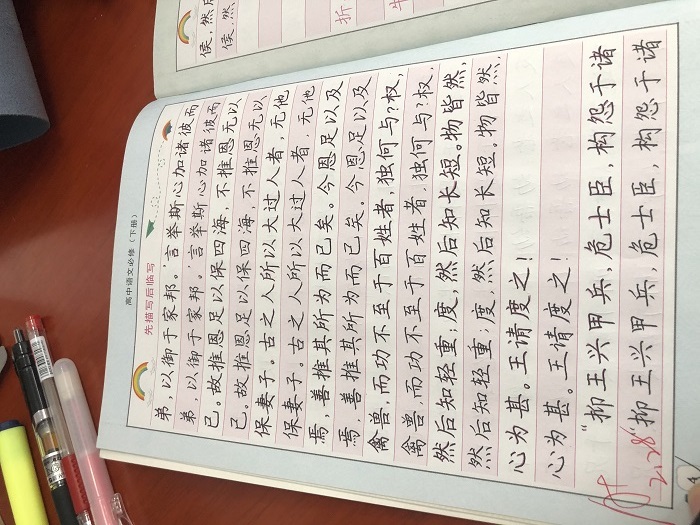 侯，然后
侯，然
折
高中语文必修（下册）
先描写后临写
弟，以御于家邦。’言举斯心加诸彼而
弟，以御于家邦。’言举斯心加诸彼而
已。故推恩足以保四海，不推恩无以
已。故推恩足以保四海，不推恩无以
保妻子。古之人所以大过人者，无他
保妻子。古之人所以大过人者，无他
焉，善推其所为而已矣。今恩足以及
焉，善推其所为而已矣。今恩足以及
禽兽，而功不至于百姓者，独何与？权，
禽兽，而功不至于百姓者，独何与？权，
然后知轻重；度，然后知长短。物皆然，
然后知轻重；度，然后知长短。物皆然，
心为甚。王请度之！
心为甚。王请度之！
“抑王兴甲兵，危士臣，构怨于诸
“抑王兴甲兵，危士臣，构怨于诸
A+
2.28
4